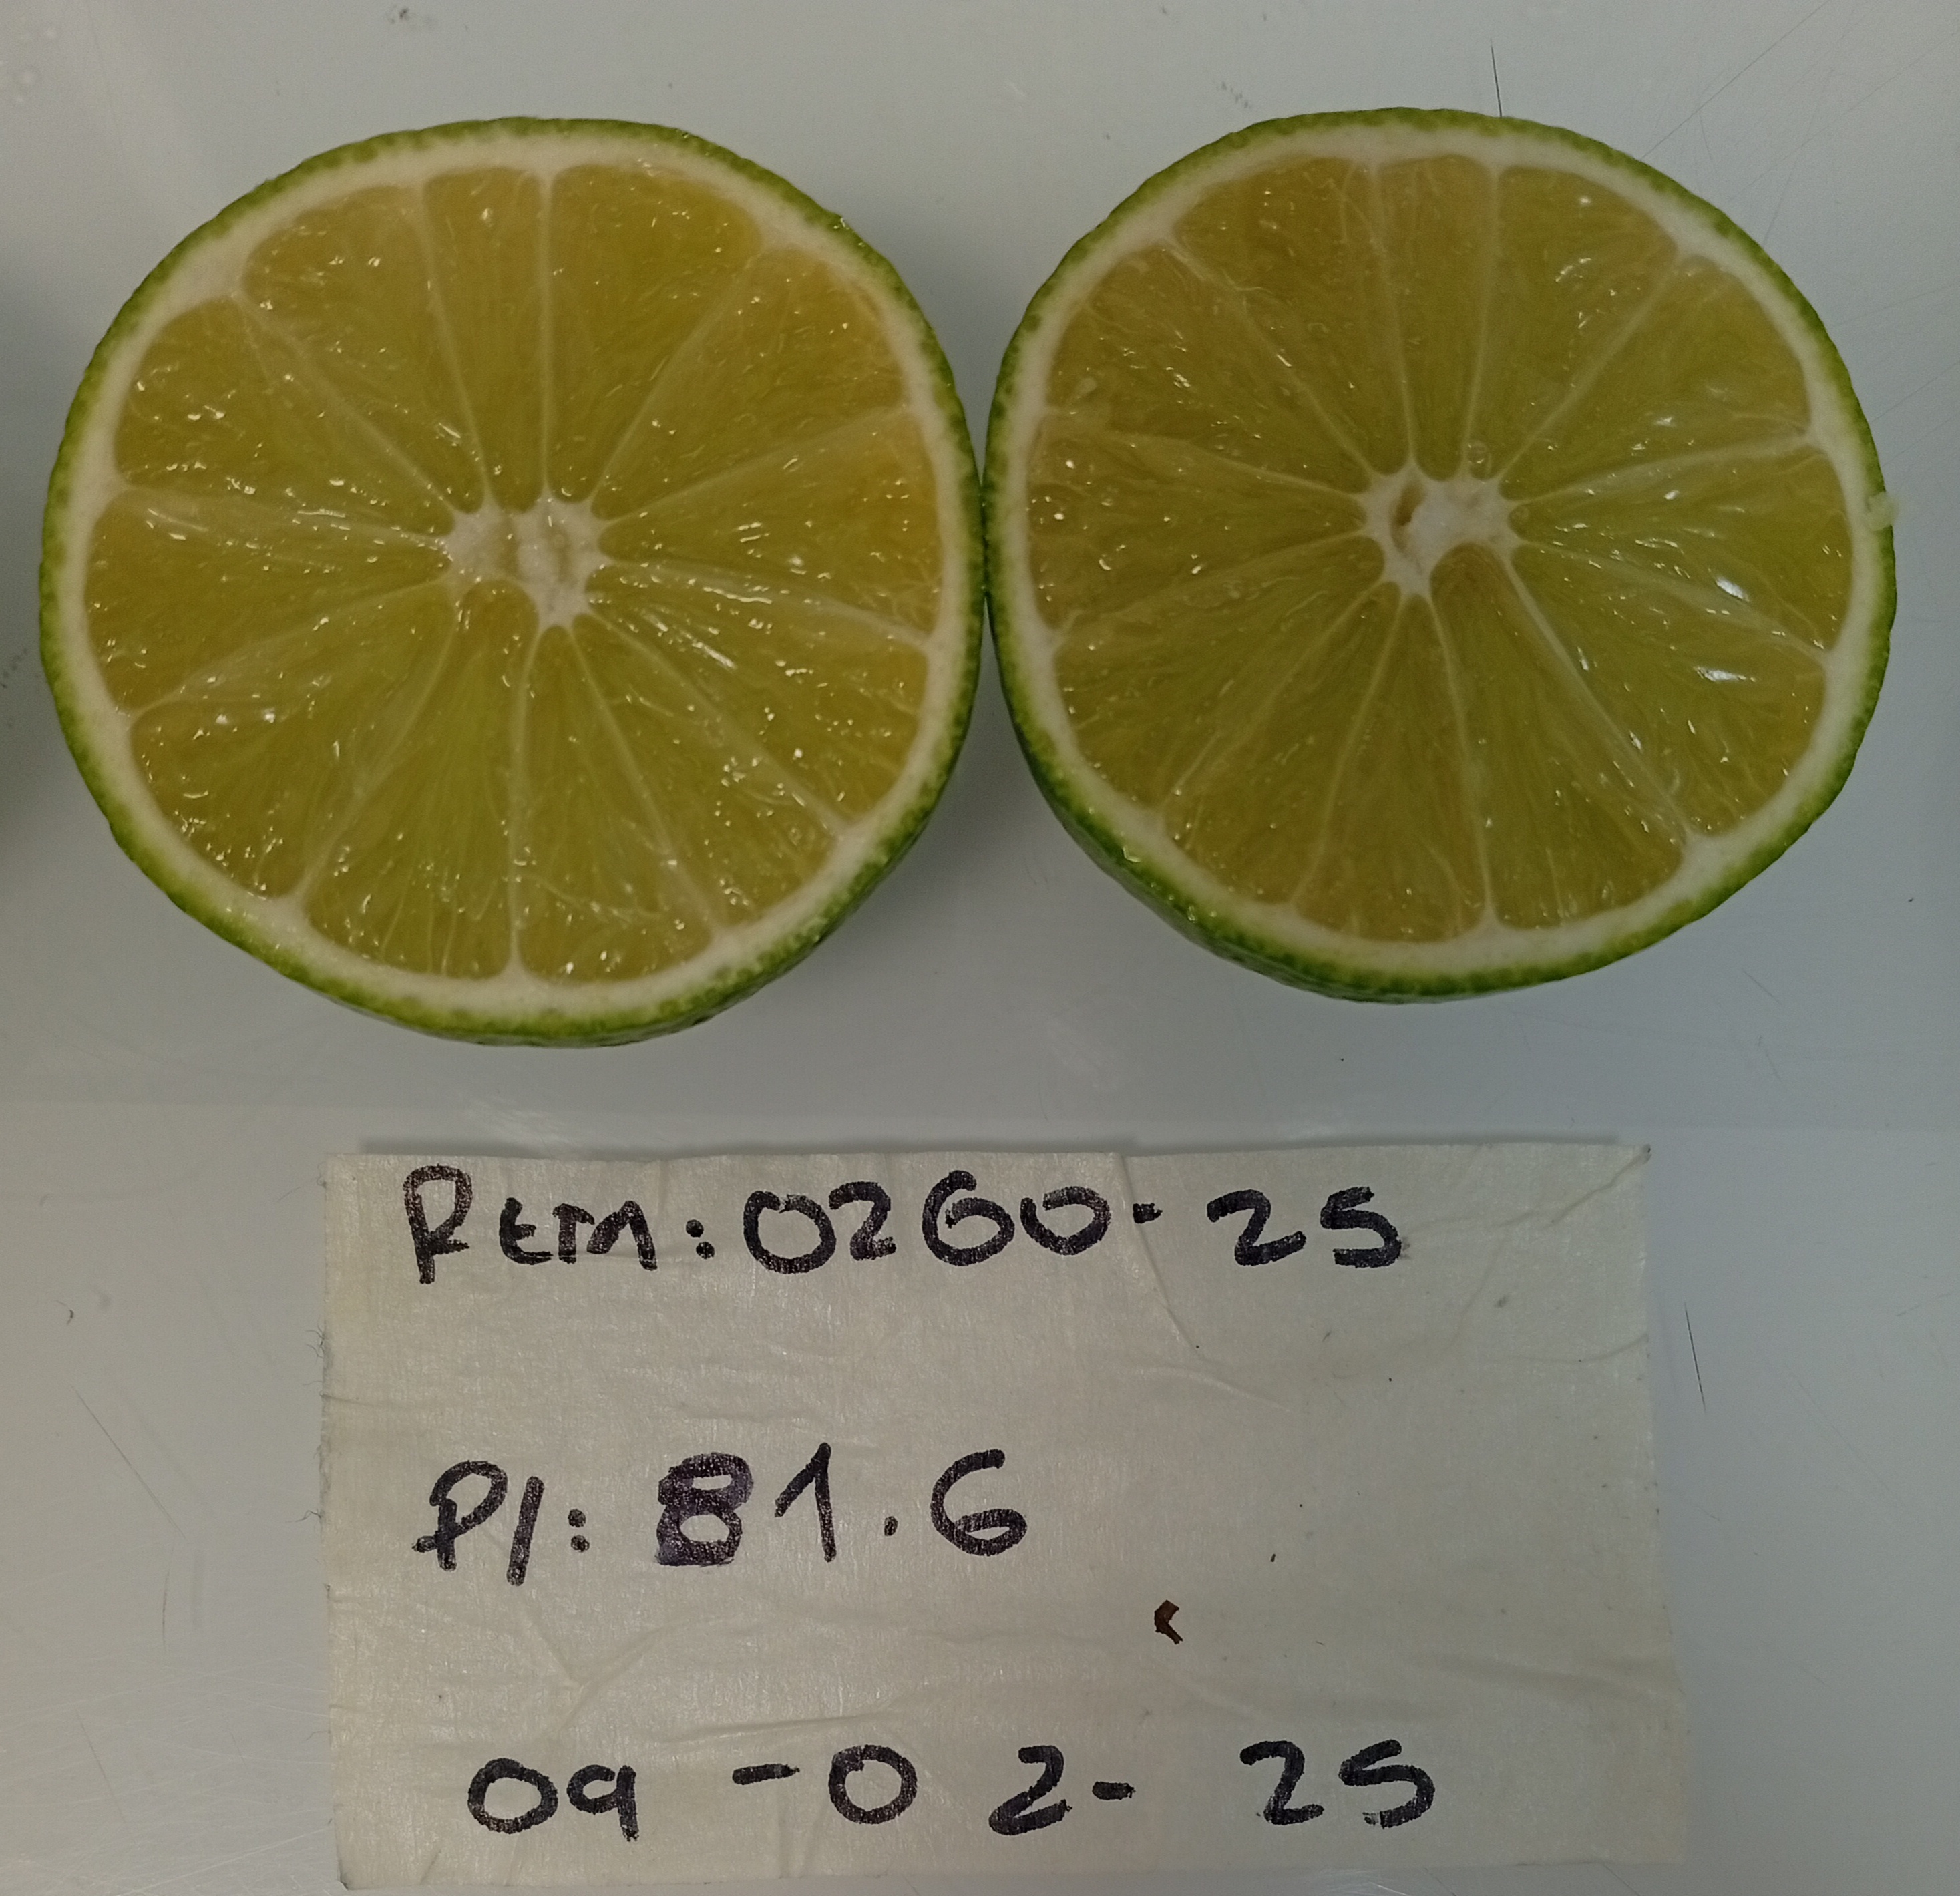 Rem: 0260-25
P/: 81.6
09-02-25